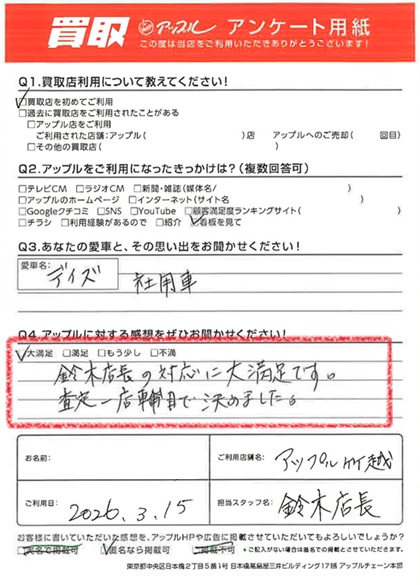 買取 アップル アンケート用紙
この度は当店をご利用いただきありがとうございます!
Q1.買取店利用について教えてください!
☑買取店を初めてご利用
□過去に買取店をご利用されたことがある
□アップル店をご利用
ご利用された店舗:アップル( )店 アップルへのご売却( 回目)
□その他の買取店( )
Q2.アップルをご利用になったきっかけは?(複数回答可)
□テレビCM □ラジオCM □新聞・雑誌(媒体名/ )
□アップルのホームページ □インターネット(サイト名 )
□Googleクチコミ □SNS □YouTube □顧客満足度ランキングサイト( )
□チラシ □利用経験があるので □紹介 ☑看板を見て
Q3.あなたの愛車と、その思い出をお聞かせください!
愛車名:
デイズ 社用車
Q4.アップルに対する感想をぜひお聞かせください!
☑大満足 □満足 □もう少し □不満
鈴木店長の対応に大満足です。
査定一店舗目で決めました。
お名前:
ご利用店舗名: アップル竹越
ご利用日: 2026.3.15
担当スタッフ名: 鈴木店長
お客様に書いていただいた感想を、アップルHPや広告に掲載させていただいてもよろしいでしょうか?
□実名で掲載可 ☑匿名なら掲載可 □掲載不可 *ご記入がない場合は匿名での掲載とさせていただきます。
東京都中央区日本橋2丁目5番1号 日本橋髙島屋三井ビルディング17階 アップルチェーン本部